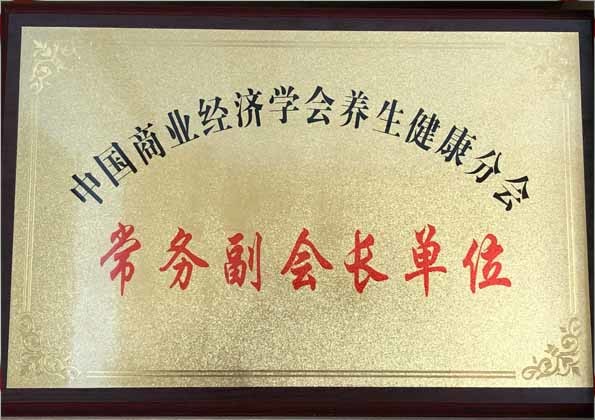 中国商业经济学会养生健康分会
常务副会长单位